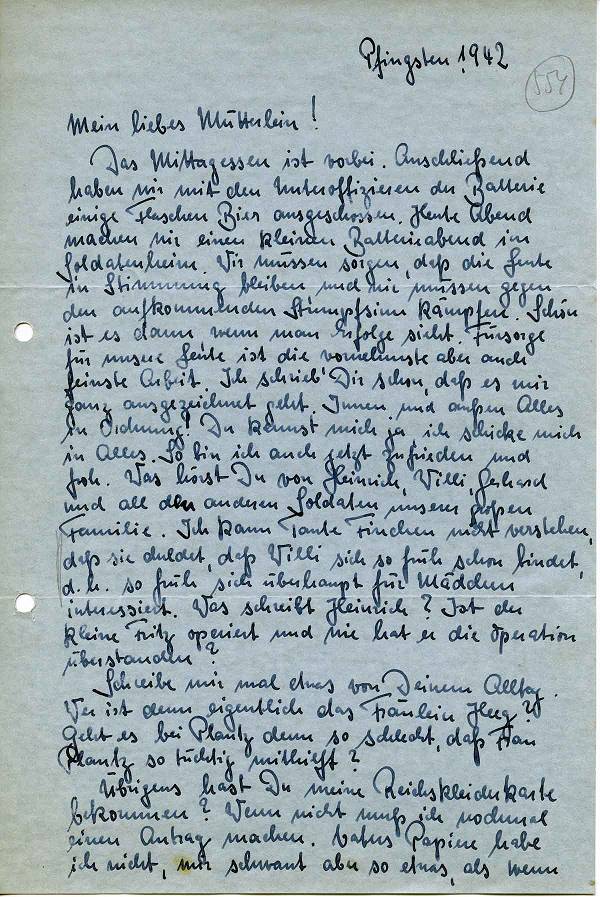 Pfingsten 1942
554
Mein liebes Mütterlein!
Das Mittagessen ist vorbei. Anschließend
haben wir mit den Unteroffizieren der Batterie
einige Flaschen Bier ausgeschossen. Heute Abend
machen wir einen kleinen Batterieabend im
Soldatenheim. Wir müssen sorgen, daß die Leute
in Stimmung bleiben und wir müssen gegen
den aufkommenden Stumpfsinn kämpfen. Schön
ist es dann wenn man Erfolge sieht. Fürsorge
für unsere Leute ist die vornehmste aber auch
feinste Arbeit. Ich schrieb' Dir schon, daß es mir
ganz ausgezeichnet geht. Innen und außen Alles
in Ordnung! Du kennst mich ja, ich schicke mich
in Alles. So bin ich auch jetzt zufrieden und
froh. Was hörst Du von Heinrich, Willi, Gerhard
und all den anderen Soldaten unserer großen
Familie. Ich kann Tante Finchen nicht verstehen,
daß sie duldet, daß Willi sich so früh schon bindet,
d.h. so früh sich überhaupt für Mädchen
interessiert. Was schreibt Heinrich? Ist der
kleine Fritz operiert und wie hat er die Operation
überstanden?
Schreibe mir mal etwas von Deinem Alltag.
Wer ist denn eigentlich das Fräulein Heeg?
Geht es bei Plantz denn so schlecht, daß Frau
Plantz so tüchtig mithilft?
Übrigens hast Du meine Reichskleiderkarte
bekommen? Wenn nicht muß ich nochmal
einen Antrag machen. Vaters Papiere habe
ich nicht, mir schwant aber so etwas, als wenn